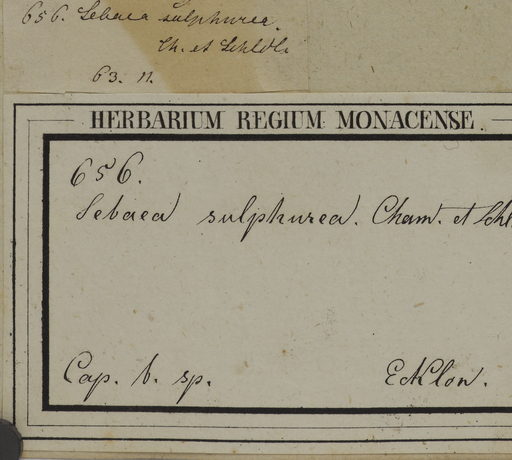 656. Sebaea sulphurea.
Ch. et Schldl
63. 11.
HERBARIUM REGIUM MONACENSE.
656.
Sebaea sulphurea. Cham. et Schl
Cap. b. sp.
Ecklon.